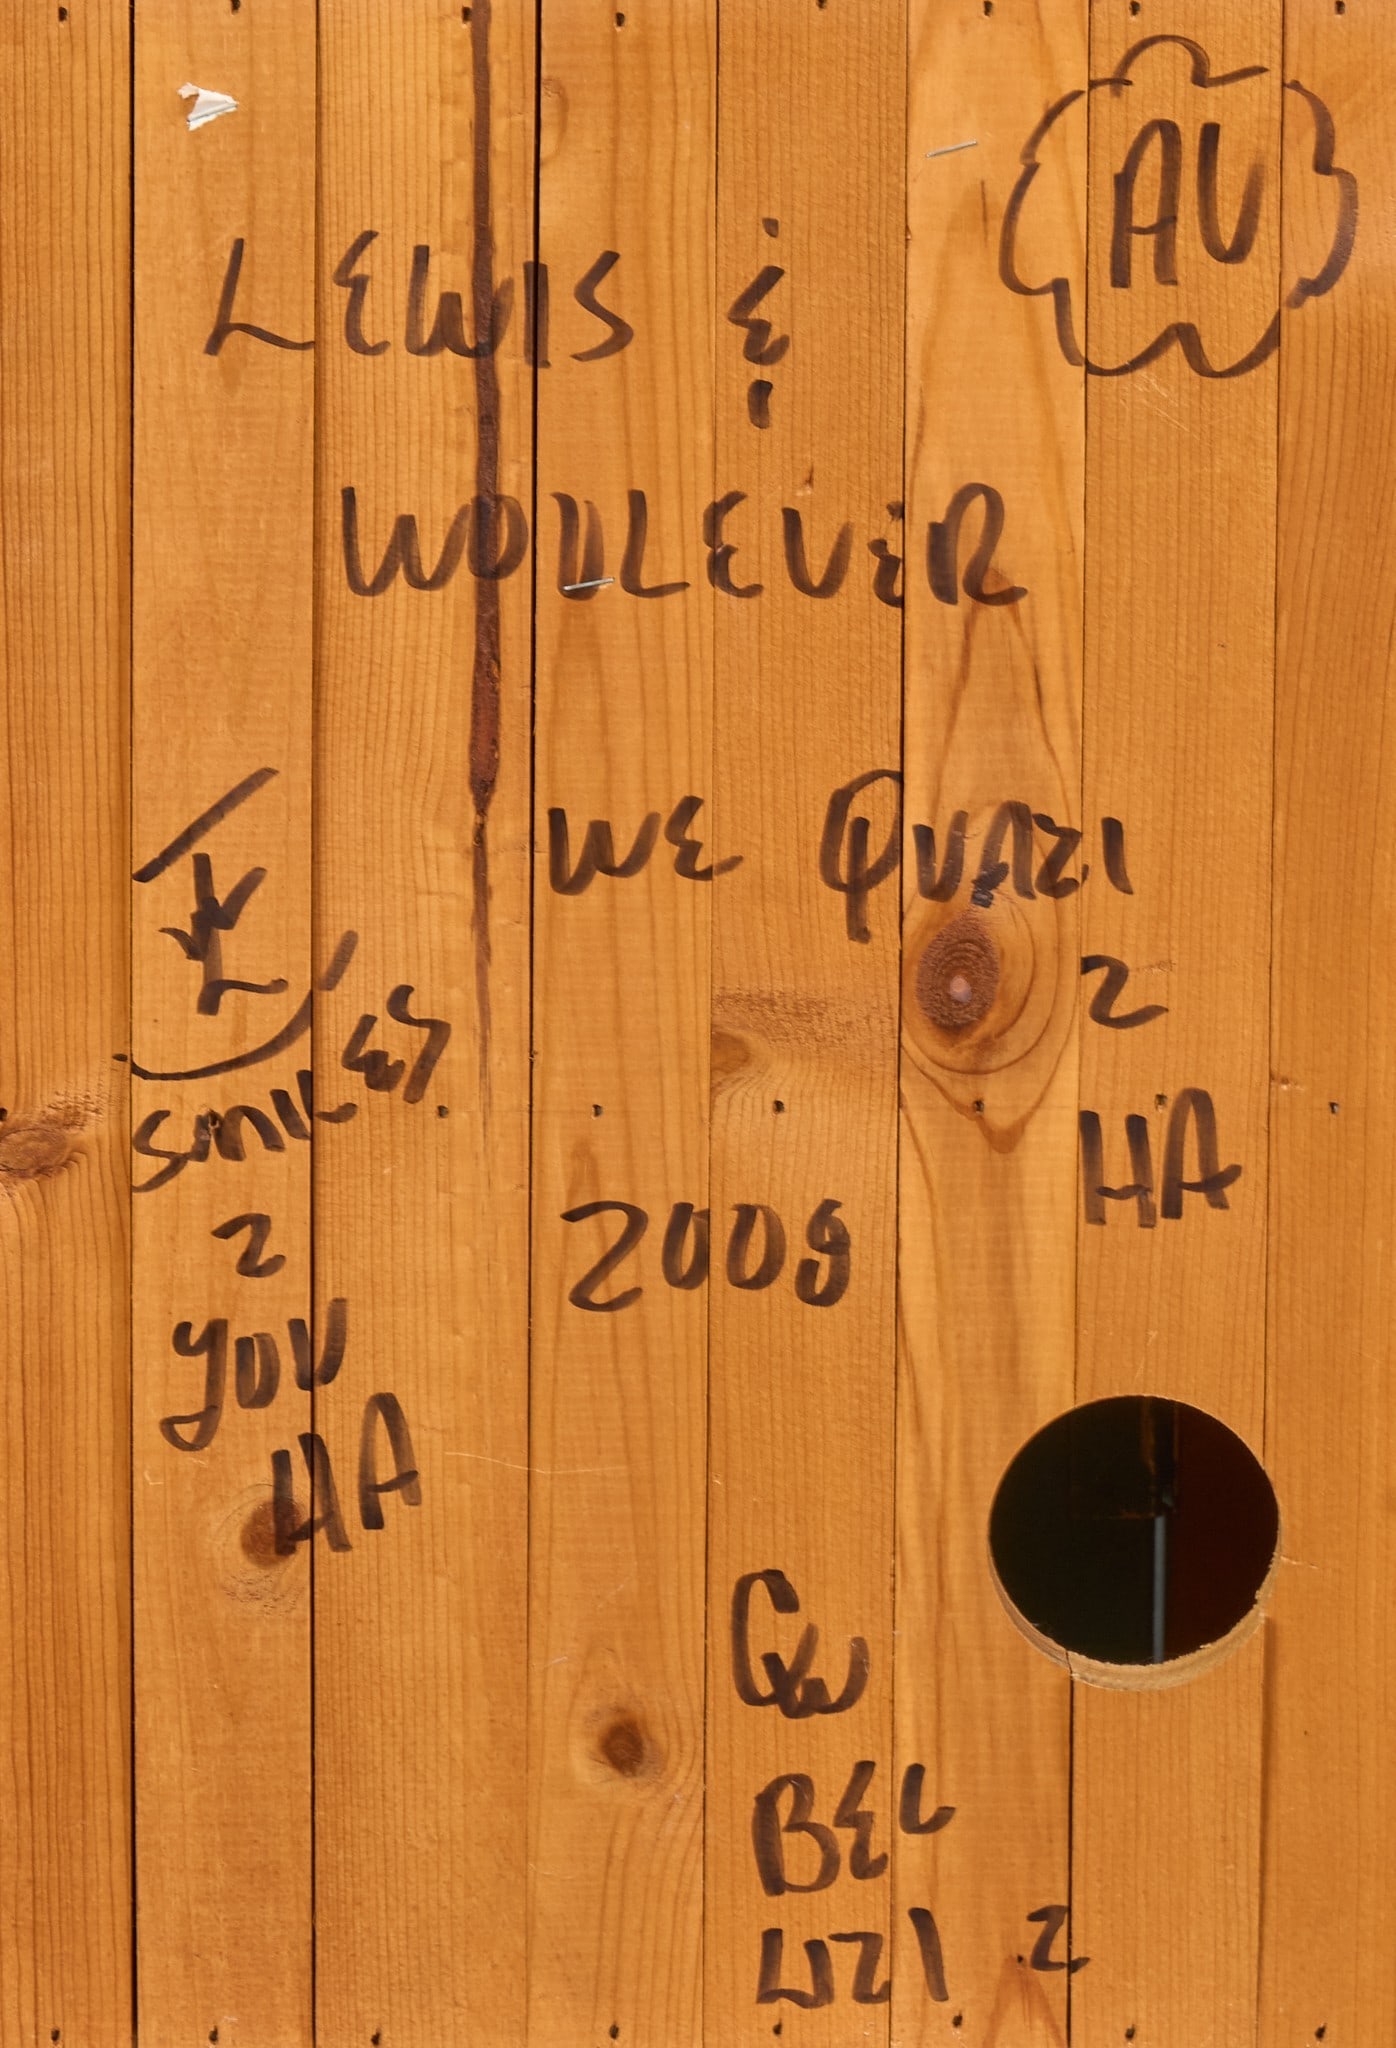 AV
LEWIS &
WOULEVER
WE QUAZI
2
HA
SMILES
2
YOU
HA
2009
BEL
UZI 2